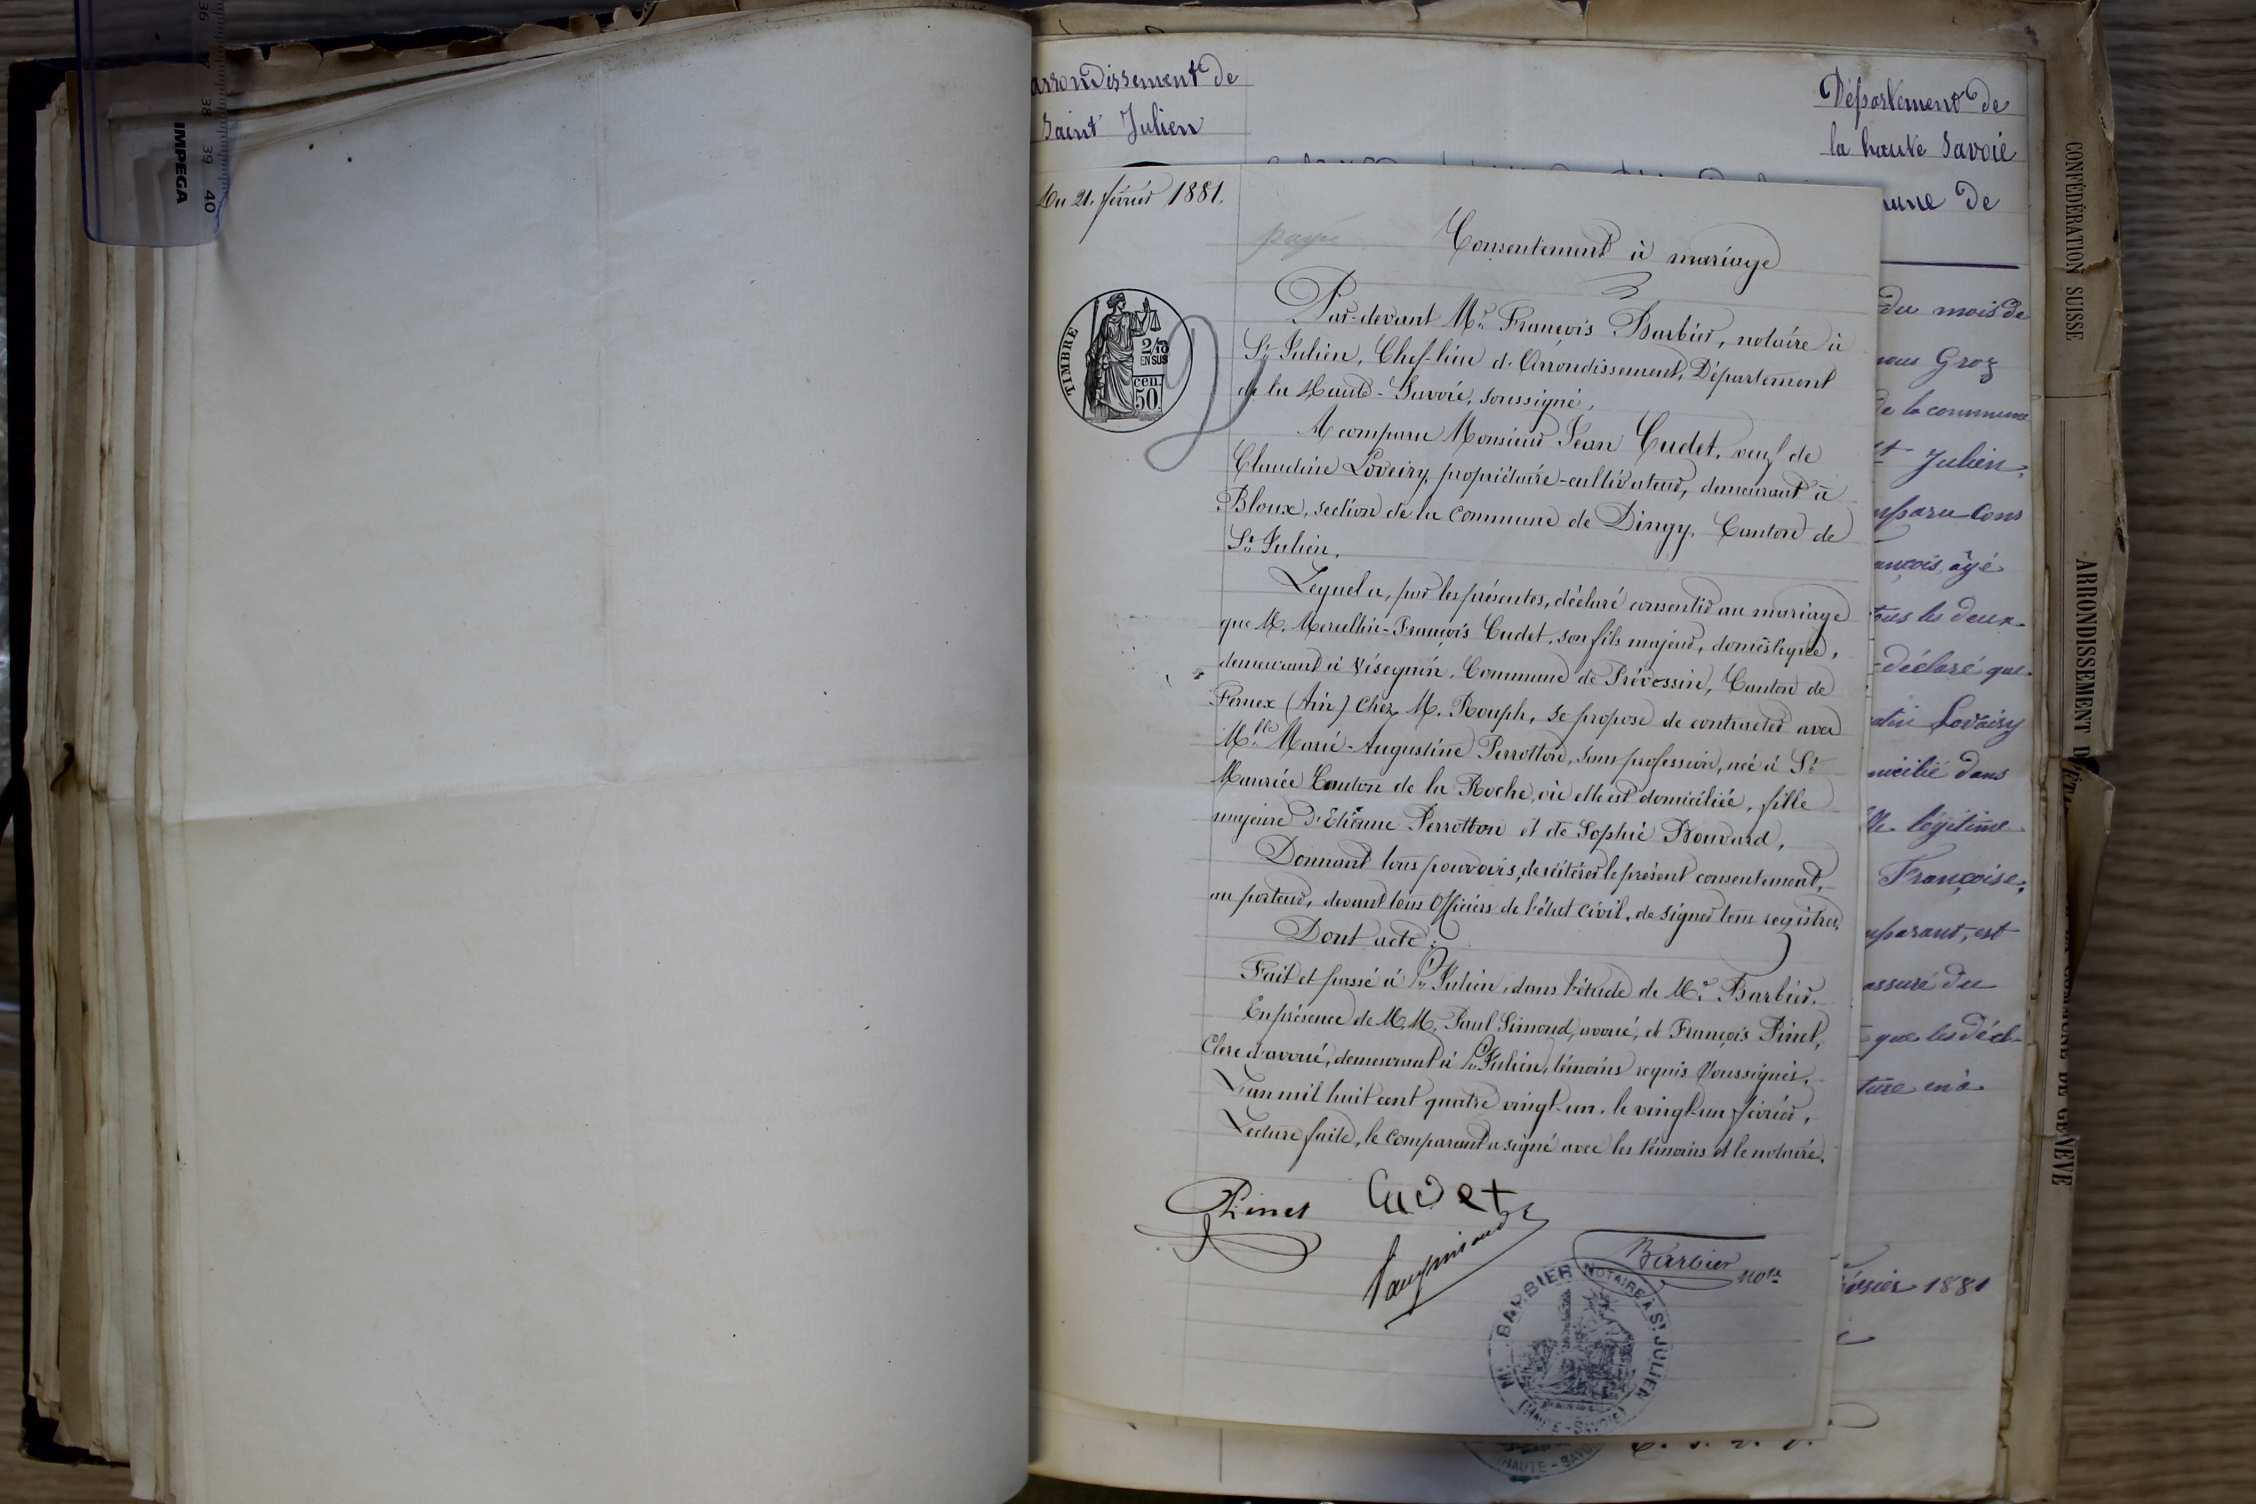 36
38
39
40
IMPEGA
arrondissement de
Saint Julien
Département de
la haute Savoie
mune de
Du 21. février 1881.
payé
Consentement à mariage
TIMBRE
2/10
EN SUS
cen.
50
Par-devant Me. François Barbier, notaire à
St. Julien, Chef-lieu d'Arrondissement, Département
de la Haute-Savoie, soussigné,
A comparu Monsieur Jean Cudet, veuf de
Claudine Loveiry, propriétaire-cultivateur, demeurant à
Bloux, section de la commune de Dingy, Canton de
St. Julien,
Lequel a, par les présentes, déclaré consentir au mariage
que M. Marellin-François Cudet, son fils majeur, domestique,
demeurant à Vésegnin, Commune de Prévessin, Canton de
Fernex (Ain) chez M. Rouph, se propose de contracter avec
Mlle Marie-Augustine Perrotton, sans profession, née à St.
Maurice Canton de la Roche, où elle est domiciliée, fille
majeure d'Etienne Perrotton et de Sophie Bouvard,
Donnant tous pouvoirs, de réitérer le présent consentement,
au porteur, devant tous Officiers de l'état civil, de signer tous registres.
Dont acte:
Fait et passé à St. Julien, dans l'étude de Me. Barbier.
En présence de M.M. Paul Simond, avoué, et François Pinet,
Clerc d'avoué, demeurant à St. Julien, témoins requis soussignés,
L'an mil huit cent quatre vingt-un, le vingt-un février,
Lecture faite, le comparant a signé avec les témoins et le notaire.
Pinet
Cudet
Paul Simond
Barbier
nore
Me BARBIER NOTAIRE A St JULIEN
(HAUTE-SAVOIE)
(HAUTE-SAV
du mois de
nous Groz
de la commune
St Julien,
mparu Cons
ançois, âgé
tous les deux
déclaré que
Lovairy
micilié dans
lle légitime
Françoise,
mparant, est
assuré du
que les décl-
ture en a
février 1881
CONFÉDÉRATION SUISSE
ARRONDISSEMENT D'ÉTAT
DE GENÈVE